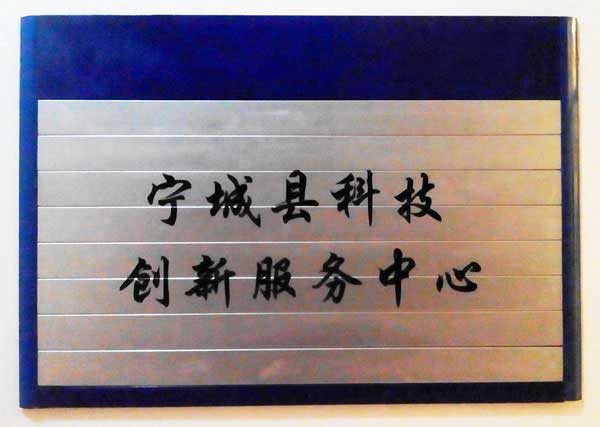 宁城县科技
创新服务中心